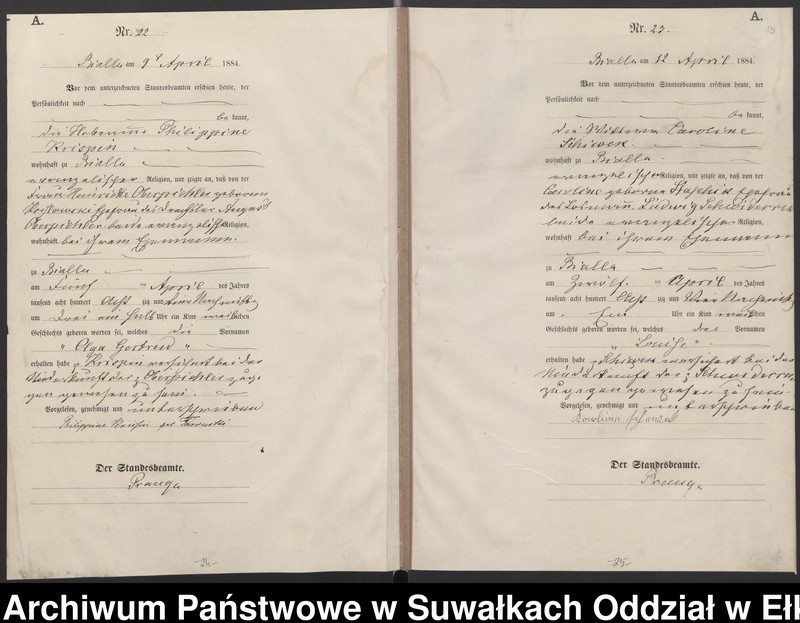 A.
Nr. 22
Bialla am 9t April 1884.
Vor dem unterzeichneten Standesbeamten erschien heute, der
Persönlichkeit nach
be kannt,
die Hebamme Philippine
Krispin
wohnhaft zu Bialla
evangelischer Religion, und zeigte an, daß von der
Frau Henriette Oberpichler geborenen
Ehefrau des Drechsler August
Oberpichler beide evangelischer Religion,
wohnhaft bei ihrem Ehemanne.
zu Bialla
am Fünf ten April des Jahres
tausend acht hundert Acht zig und vier Nachmittag
um drei ein halb Uhr ein Kind weiblichen
Geschlechts geboren worden sei, welches die Vornamen
" Olga Gertrud "
erhalten habe, Krispin versichert bei der
Niederkunft der Oberpichler zuge-
gen gewesen zu sein.
Vorgelesen, genehmigt und unterschrieben
Philippine
Der Standesbeamte.
Prang
-24-
A.
19
Nr. 23.
Bialla am 12 April 1884.
Vor dem unterzeichneten Standesbeamten erschien heute, der
Persönlichkeit nach
be kannt,
die Wittwe Caroline
wohnhaft zu Bialla
evangelischer Religion, und zeigte an, daß von der
Caroline geborene Ehefrau
des Losmann Ludwig
beide evangelischer Religion,
wohnhaft bei ihrem Ehemann
zu Bialla
am Zwölf ten April des Jahres
tausend acht hundert Acht zig und Vier Nachmittag
um Ein Uhr ein Kind weiblichen
Geschlechts geboren worden sei, welches das Vornamen
" Louise "
erhalten habe, versichert bei der
Niederkunft der
zugegen gewesen zu sein.
Vorgelesen, genehmigt und unterschrieben
Der Standesbeamte.
Prang
-25-
Archiwum Państwowe w Suwałkach Oddział w Ełk